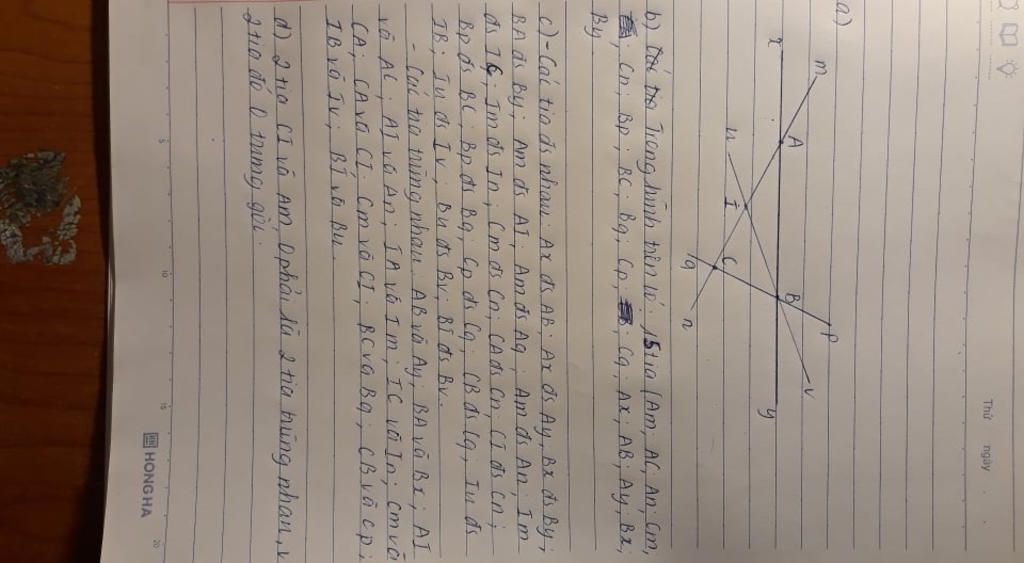 Thứ ngày
a)
m
x
A
u
I
B
p
C
v
q
n
y
b) Trong hình trên có: 15 tia (Am, AC, An, Cm,
Cn, Bp, BC, Bq, Cp, Cq, Ax, AB, Ay, Bx,
By
c) - Các tia đs nhau: Ax đs AB; Ax đs Ay, Bx đs By;
BA đs By; Am đs AI, Am đs Aq; Am đs An; Im
đs IC; Im đs In; Cm đs Cn; CA đs Cn; CI đs Cn;
Bp đs BC; Bp đs Bq, Cp đs Cq; CB đs Cq; Iu đs
IB; Iu đs Iv; Bu đs Bv; BI đs Bv.
- Các tia trùng nhau: AB và Ay; BA và Bx; AI
và AC, AI và An; IA và Im; IC và In; Cm và
CA; CA và CI, Cm và CI; BC và Bq; CB và Cp;
IB và Iv; BI và Bu.
d) 2 tia CI và Am 0 phải là 2 tia trùng nhau, v
2 tia đó 0 trung gốc.
5
10
15
20
HONG HA